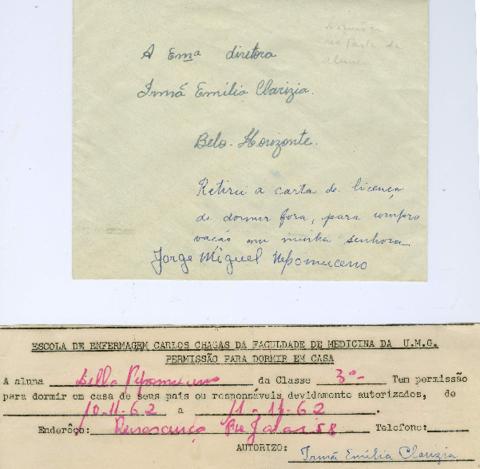 A Ema diretora
Irmã Emilia Clarizia.
Belo-Horizonte.
Retirei a carta de licença
de dormir fora, para compro
vação em minha senhora
Jorge Miguel Nepomuceno
ESCOLA DE ENFERMAGEM CARLOS CHAGAS DA FACULDADE DE MEDICINA DA U.M.G.
PERMISSÃO PARA DORMIR EM CASA
A aluna Nepomuceno da Classe 3ª Tem permissão
para dormir em casa de seus pais ou responsáveis devidamente autorizados, de
10-11-62 a 11-11-62
Endereço: Renascença 58 Telefone:
AUTORIZO: Irmã Emilia Clarizia